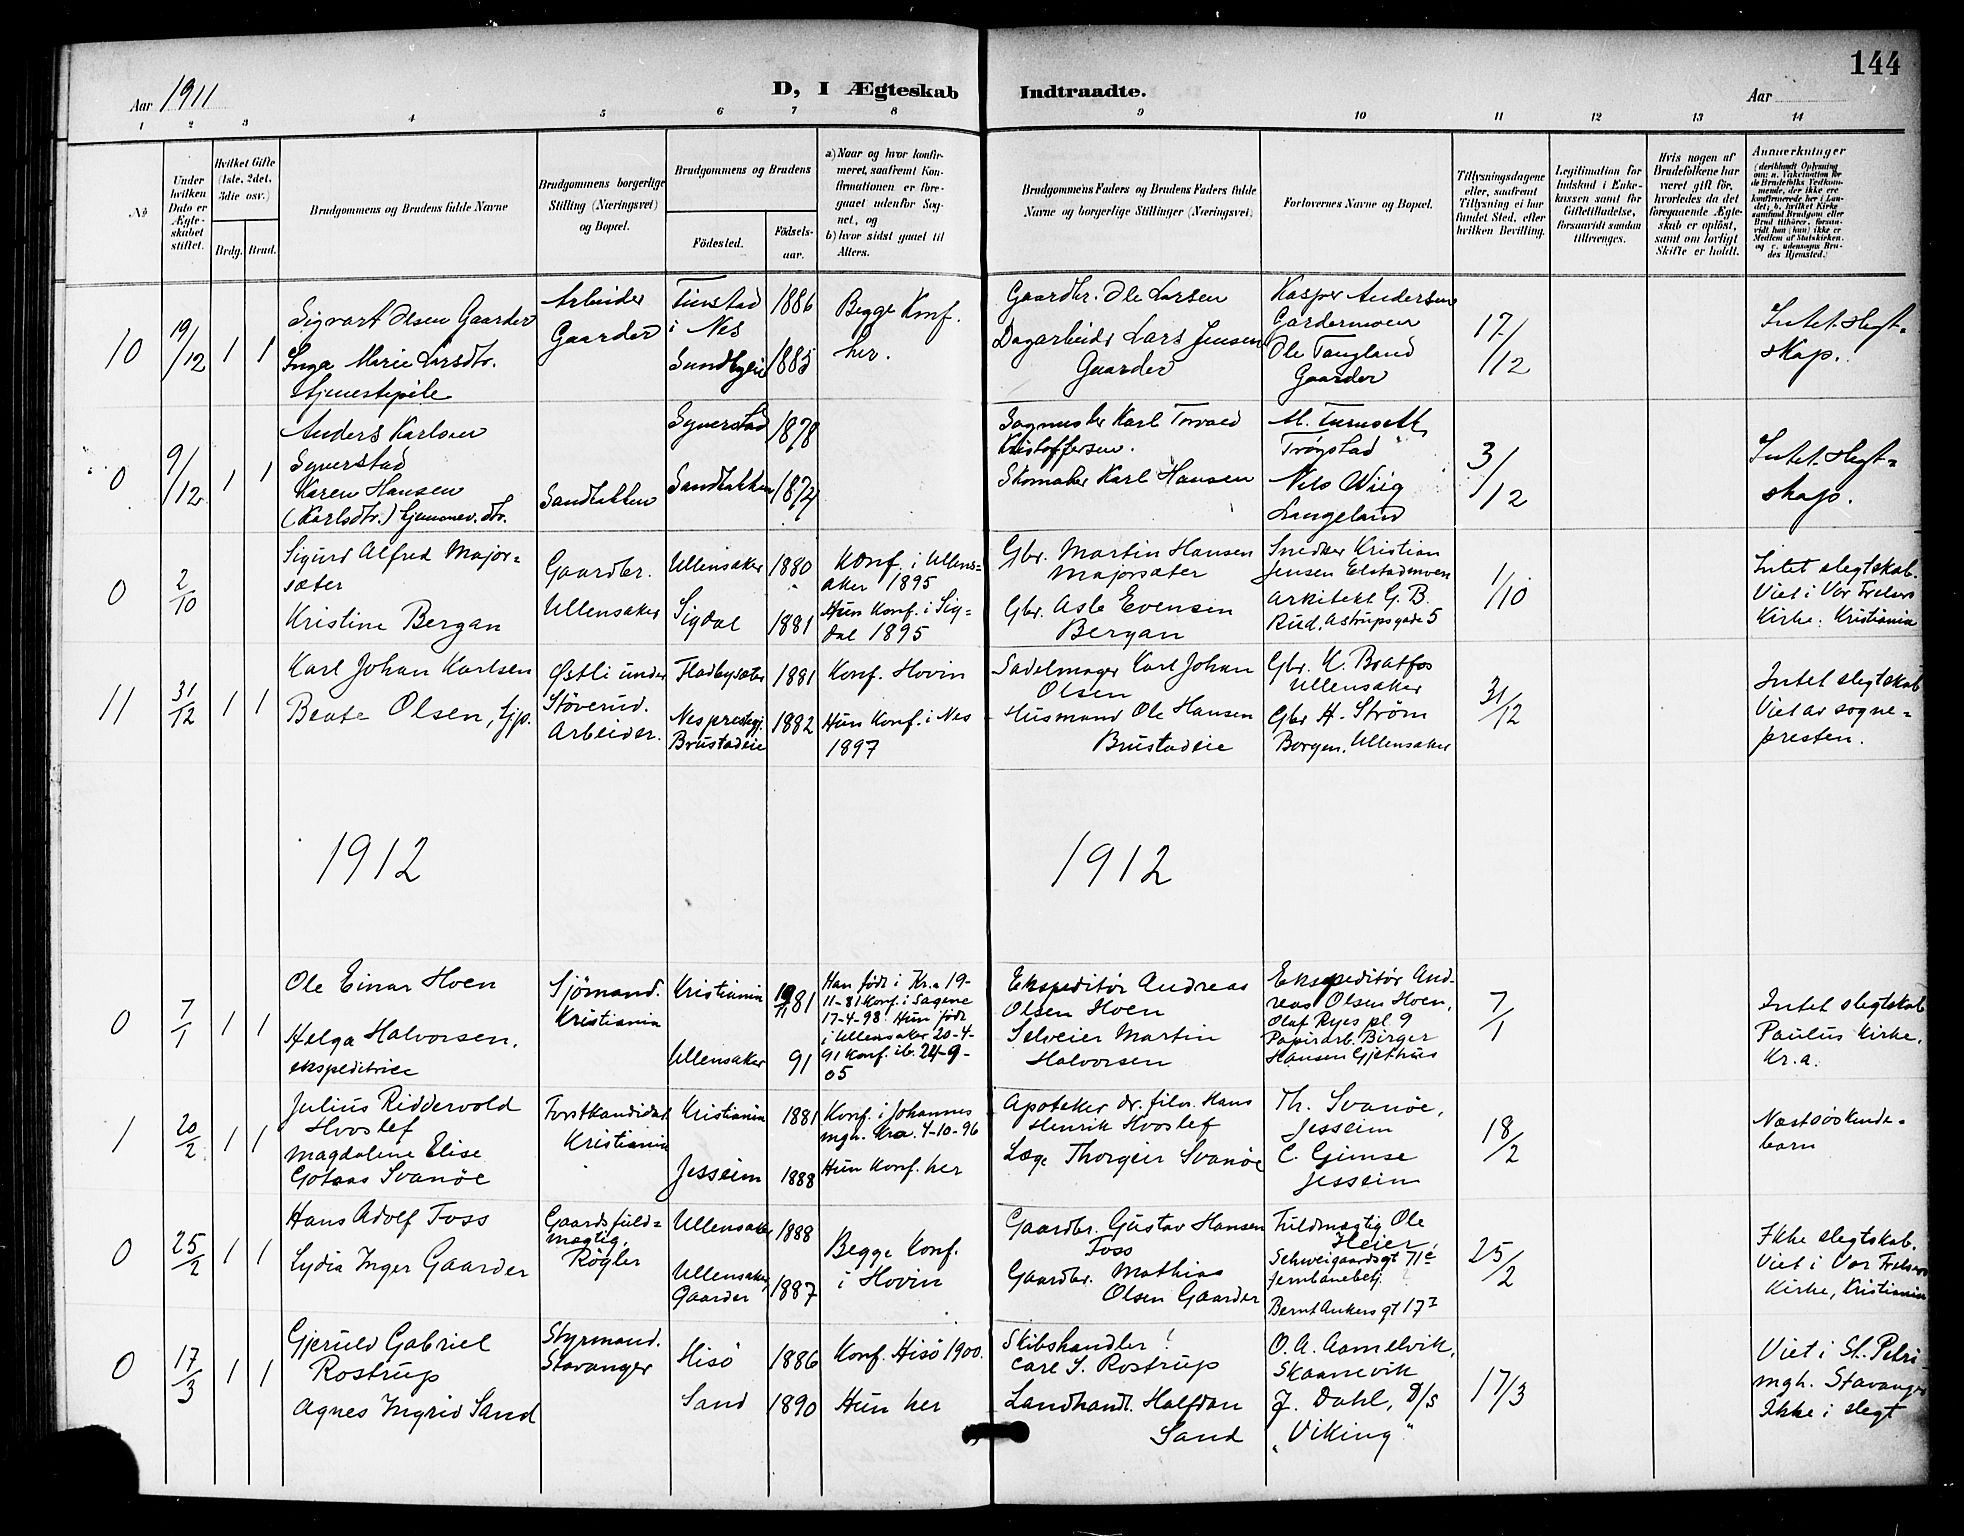 144
Aar 1911
D, I Ægteskab Indtraadte.
Aar
1 2 3 4 5 6 7 8 9 10 11 12 13 14
No
Under hvilken Dato er Ægteskabet stiftet.
Hvilket Gifte (1ste, 2det, 3die osv.)
Brdg. Brud.
Brudgommens og Brudens fulde Navne
Brudgommens borgerlige Stilling (Næringsvei) og Bopæl.
Brudgommens og Brudens
Fødested.
Fødsels-aar.
a) Naar og hvor konfirmeret, saafremt Konfirmationen er foregaaet udenfor Sognet, og
b) hvor sidst gaaet til Alters.
Brudgommens Faders og Brudens Faders fulde Navne og borgerlige Stillinger (Næringsvei)
Forlovernes Navne og Bopæl.
Tillysningsdagene eller, saafremt Tillysning ei har fundet Sted, efter hvilken Bevilling.
Legitimation for Indskud i Enkekassen samt for Giftetilladelse, forsaavidt saadan tiltrænges.
Hvis nogen af Brudefolkene har været gift før, hvorledes da det foregaaende Ægteskab er opløst, samt om lovligt Skifte er holdt.
Anmerkninger (deriblandt Oplysning om: a. Vakcination for de Brudefolks Vedkommende, der ikke ere konfirmerede her i Landet; b. hvilket Kirkesamfund Brudgom eller Brud tilhører, forsaavidt han (hun) ikke er Medlem af Statskirken, og c. udensogns Brudes Hjemsted.)
10
19/12
1 1
Sigvart Olsen Gaarder
Inga Marie Larsdtr.
Arbeider
Gaarder
i Nes
1886
1885
Begge Konf.
her.
Gaardbr. Ole Larsen
Dagarbeider Lars Jensen
Gaarder
Kasper Andersen
Gardermoen
Ole Tangland
Gaarder
17/12
Intet Slegt-
skap.
0
9/12
1 1
Anders Karlsen
Synerstad
Karen Hansen
(Karlsdtr.)
Sandbakken
Synerstad
Sandbakken
1878
1874
Kristoffersen.
Skomaker Karl Hansen
Trøgstad
Nils Wiig
Langeland
3/12
Intet Slegt-
skap.
0
2/10
Sigurd Alfred Major-
sæter
Kristine Bergan
Gaardbr.
Ullensaker
Ullensaker
Sigdal
1880
1881
Konf. i Ullens-
aker 1895
Hun Konf. i Sig-
dal 1895
Gbr. Martin Hansen
Majorsæter
Gbr. Asle Evensen
Bergan
Snedker Kristian
Jensen Elstadmoen
Arkitekt G. B.
Rud, Astrupsgade 5
1/10
Intet slegtskab.
Viet i Vor Frelsers
Kirke. Kristiania
11
31/12
1 1
Karl Johan Karlsen
Beate Olsen, tjp.
Østli under
Støverud.
Arbeider.
Fladbysæter
Nes prestegj.
Brustadeie
1881
1882
Konf. Hovin
Hun Konf. i Nes
1897
Sadelmager Karl Johan
Olsen
Husmand Ole Hansen
Brustadeie
Gbr. K. Bratfos
Ullensaker
Gbr H. Strøm
Borgen, Ullensaker
31/12
Intet slegtskab
Viet av sogne-
presten.
1912 1912
0
7/1
1 1
Ole Einar Hoen
Helga Halvorsen,
ekspeditrice
Sjömand.
Kristiania
Kristiania
Ullensaker
19/11 81
91
Han født i Kr.a 19-
11-81 Konf. i Sagene
17-4-98. Hun født
i Ullensaker 20-4-
91 Konf. ib. 24-9-
05
Ekspeditør Andreas
Olsen Hoen
Selveier Martin
Halvorsen
Ekspeditør And-
reas Olsen Hoen,
Olaf Ryes pl. 9
Papirarb. Birger
Hansen Gjethus
7/1
Intet slegtskab
Paulus Kirke,
Kr.a.
1
20/2
1 1
Julius Riddervold
Hvoslef
Magdalene Elise
Gotaas Svanöe
Forstkandidat
Kristiania
Kristiania
Jesseim
1881
1888
Konf. i Johannes
mgh. Kra. 4-10-96
Hun Konf. her
Apoteker dr. filos. Hans
Henrik Hvoslef
Læge Thorgeir Svanöe
Th. Svanöe,
Jesseim
C. Gimse
Jesseim
18/2
Næstsöskende-
barn
0
25/2
1 1
Hans Adolf Foss
Lydia Inger Gaarder
Gaardsfuld-
mægtig,
Rögler
Ullensaker
Ullensaker,
Gaarder
1888
1887
Begge Konf.
i Hovin
Gaardbr. Gustav Hansen
Foss
Gaardbr. Mathias
Olsen Gaarder
Fuldmægtig Ole
Heier,
Schweigaardsgt 71
Jernbanebetj.
Bernt Ankers gt 17
25/2
Ikke slegtskab.
Viet i Vor Frelsers
Kirke, Kristiania
0
17/3
1 1
Gjeruld Gabriel
Rostrup
Agnes Ingrid Sand
Styrmand.
Stavanger
Hisö
Sand
1886
1890
Konf. Hisö 1900.
Hun her
Skibshandler
Carl S. Rostrup
Landhandl. Halfdan
Sand
O. A. Aamelvik,
Skaanevik
J. Dahl, D/S
"Viking"
17/3
Viet i St. Petri
mgh. Stavanger
Ikke i slegt